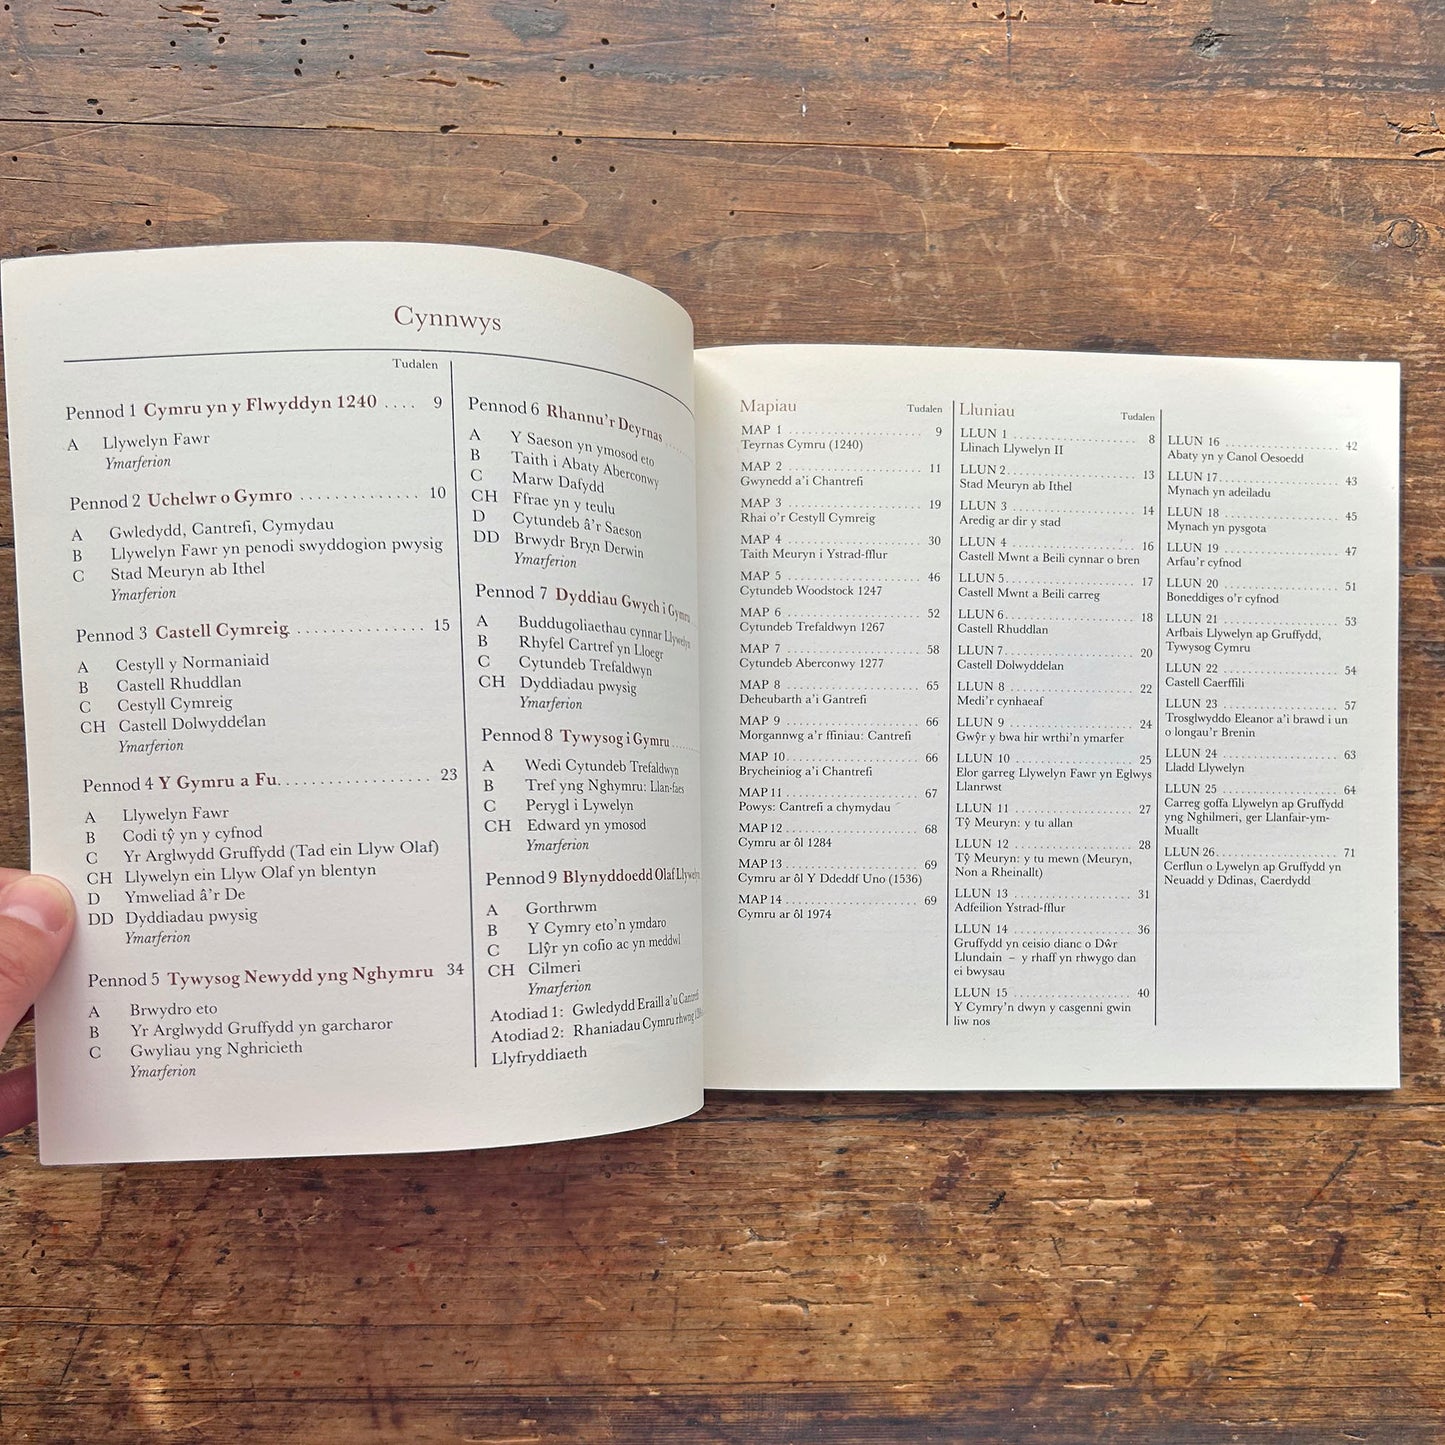 Cynnwys
Tudalen
Pennod 1 Cymru yn y Flwyddyn 1240 .... 9
A Llywelyn Fawr
Ymarferion
Pennod 2 Uchelwr o Gymro .............. 10
A Gwledydd, Cantrefi, Cymydau
B Llywelyn Fawr yn penodi swyddogion pwysig
C Stad Meuryn ab Ithel
Ymarferion
Pennod 3 Castell Cymreig ............... 15
A Cestyll y Normaniaid
B Castell Rhuddlan
C Cestyll Cymreig
CH Castell Dolwyddelan
Ymarferion
Pennod 4 Y Gymru a Fu .................. 23
A Llywelyn Fawr
B Codi tŷ yn y cyfnod
C Yr Arglwydd Gruffydd (Tad ein Llyw Olaf)
CH Llywelyn ein Llyw Olaf yn blentyn
D Ymweliad â'r De
DD Dyddiadau pwysig
Ymarferion
Pennod 5 Tywysog Newydd yng Nghymru 34
A Brwydro eto
B Yr Arglwydd Gruffydd yn garcharor
C Gwyliau yng Nghricieth
Ymarferion
Pennod 6 Rhannu'r Deyrnas ......
A Y Saeson yn ymosod eto
B Taith i Abaty Aberconwy
C Marw Dafydd
CH Ffrae yn y teulu
D Cytundeb â'r Saeson
DD Brwydr Bryn Derwin
Ymarferion
Pennod 7 Dyddiau Gwych i Gymru
A Buddugoliaethau cynnar Llywelyn
B Rhyfel Cartref yn Lloegr
C Cytundeb Trefaldwyn
CH Dyddiadau pwysig
Ymarferion
Pennod 8 Tywysog i Gymru ......
A Wedi Cytundeb Trefaldwyn
B Tref yng Nghymru: Llan-faes
C Perygl i Lywelyn
CH Edward yn ymosod
Ymarferion
Pennod 9 Blynyddoedd Olaf Llywelyn
A Gorthrwm
B Y Cymry eto'n ymdaro
C Llŷr yn cofio ac yn meddwl
CH Cilmeri
Ymarferion
Atodiad 1: Gwledydd Eraill a'u Cantrefi
Atodiad 2: Rhaniadau Cymru rhwng
Llyfryddiaeth
Mapiau Tudalen
MAP 1 .................... 9
Teyrnas Cymru (1240)
MAP 2 .................... 11
Gwynedd a'i Chantrefi
MAP 3 .................... 19
Rhai o'r Cestyll Cymreig
MAP 4 .................... 30
Taith Meuryn i Ystrad-fflur
MAP 5 .................... 46
Cytundeb Woodstock 1247
MAP 6 .................... 52
Cytundeb Trefaldwyn 1267
MAP 7 .................... 58
Cytundeb Aberconwy 1277
MAP 8 .................... 65
Deheubarth a'i Gantrefi
MAP 9 .................... 66
Morgannwg a'r ffiniau: Cantrefi
MAP 10 .................... 66
Brycheiniog a'i Chantrefi
MAP 11 .................... 67
Powys: Cantrefi a chymydau
MAP 12 .................... 68
Cymru ar ôl 1284
MAP 13 .................... 69
Cymru ar ôl Y Ddeddf Uno (1536)
MAP 14 .................... 69
Cymru ar ôl 1974
Lluniau Tudalen
LLUN 1 .................... 8
Llinach Llywelyn II
LLUN 2 .................... 13
Stad Meuryn ab Ithel
LLUN 3 .................... 14
Aredig ar dir y stad
LLUN 4 .................... 16
Castell Mwnt a Beili cynnar o bren
LLUN 5 .................... 17
Castell Mwnt a Beili carreg
LLUN 6 .................... 18
Castell Rhuddlan
LLUN 7 .................... 20
Castell Dolwyddelan
LLUN 8 .................... 22
Medi'r cynhaeaf
LLUN 9 .................... 24
Gwŷr y bwa hir wrthi'n ymarfer
LLUN 10 .................... 25
Elor garreg Llywelyn Fawr yn Eglwys
Llanrwst
LLUN 11 .................... 27
Tŷ Meuryn: y tu allan
LLUN 12 .................... 28
Tŷ Meuryn: y tu mewn (Meuryn,
Non a Rheinallt)
LLUN 13 .................... 31
Adfeilion Ystrad-fflur
LLUN 14 .................... 36
Gruffydd yn ceisio dianc o Dŵr
Llundain – y rhaff yn rhwygo dan
ei bwysau
LLUN 15 .................... 40
Y Cymry'n dwyn y casgenni gwin
liw nos
LLUN 16 .................... 42
Abaty yn y Canol Oesoedd
LLUN 17 .................... 43
Mynach yn adeiladu
LLUN 18 .................... 45
Mynach yn pysgota
LLUN 19 .................... 47
Arfau'r cyfnod
LLUN 20 .................... 51
Boneddiges o'r cyfnod
LLUN 21 .................... 53
Arfbais Llywelyn ap Gruffydd,
Tywysog Cymru
LLUN 22 .................... 54
Castell Caerffili
LLUN 23 .................... 57
Trosglwyddo Eleanor a'i brawd i un
o longau'r Brenin
LLUN 24 .................... 63
Lladd Llywelyn
LLUN 25 .................... 64
Carreg goffa Llywelyn ap Gruffydd
yng Nghilmeri, ger Llanfair-ym-
Muallt
LLUN 26 .................... 71
Cerflun o Lywelyn ap Gruffydd yn
Neuadd y Ddinas, Caerdydd